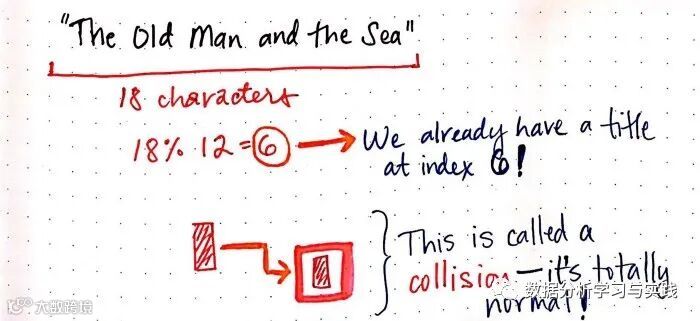 "The Old Man and the Sea"
18 characters
18% 12 = 6
We already have a title
at index 6!
This is called a
collision — it's totally
normal!
大数跨境
数据分析学习与实践